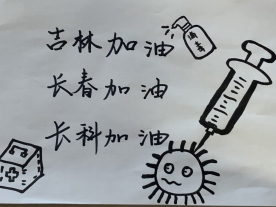 吉林加油
长春加油
长科加油
消毒